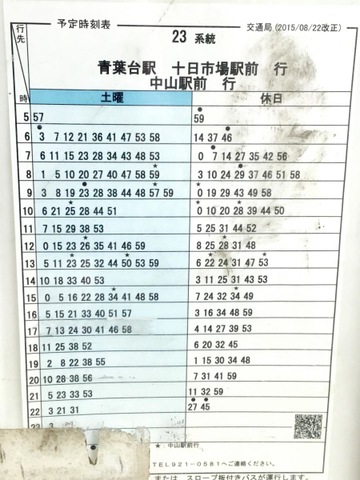 予定時刻表
交通局 (2015/08/22改正)
行先
23 系統
青葉台駅 十日市場駅前 行
中山駅前 行
時 土曜 休日
5 57 59
6 3 7 12 21 36 41 47 53 58 14 37 46
7 6 11 15 23 28 34 43 48 53 0 7 14 27 35 42 56
8 1 5 10 20 27 40 47 58 59 3 10 24 29 37 46 51 58
9 3 8 19 23 28 38 44 48 57 59 0 19 29 43 49 58
10 6 21 25 28 44 51 0 10 20 28 39 44 50
11 7 15 29 38 53 5 25 31 44 52
12 0 15 23 26 35 41 46 59 8 25 28 31 48
13 5 11 23 25 32 44 50 53 59 6 22 24 31 47 53
14 10 18 33 40 53 3 11 25 31 43 53
15 0 5 16 22 28 34 41 48 58 7 24 32 34 49
16 5 15 21 33 40 51 57 3 16 34 48 59
17 7 13 24 30 41 46 58 4 14 27 39 53
18 11 25 38 52 6 20 32 45
19 2 8 22 38 55 1 15 30 34 48
20 10 28 38 56 7 31 41 59
21 5 23 33 53 11 32 59
22 3 21 31 27 45
★: 中山駅前行
TEL921-0581へご連絡ください。
または、スロープ板付きバスが運行します。